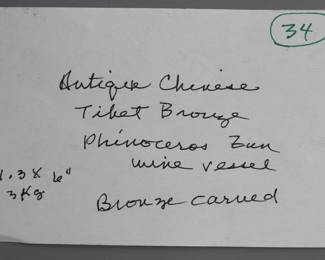 34
Antique Chinese
Tibet Bronze
Rhinoceros Zun
wine vessel
.3 X 6"
3Kg
Bronze carved